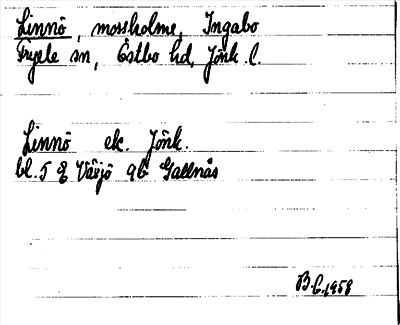 Linnö, mossholme, Ingabo
Fryele sn, Östbo hd, Jönk. l.
Linnö ek. Jönk.
bl. 5 E Växjö 9b Gällnås
B.L. 1958